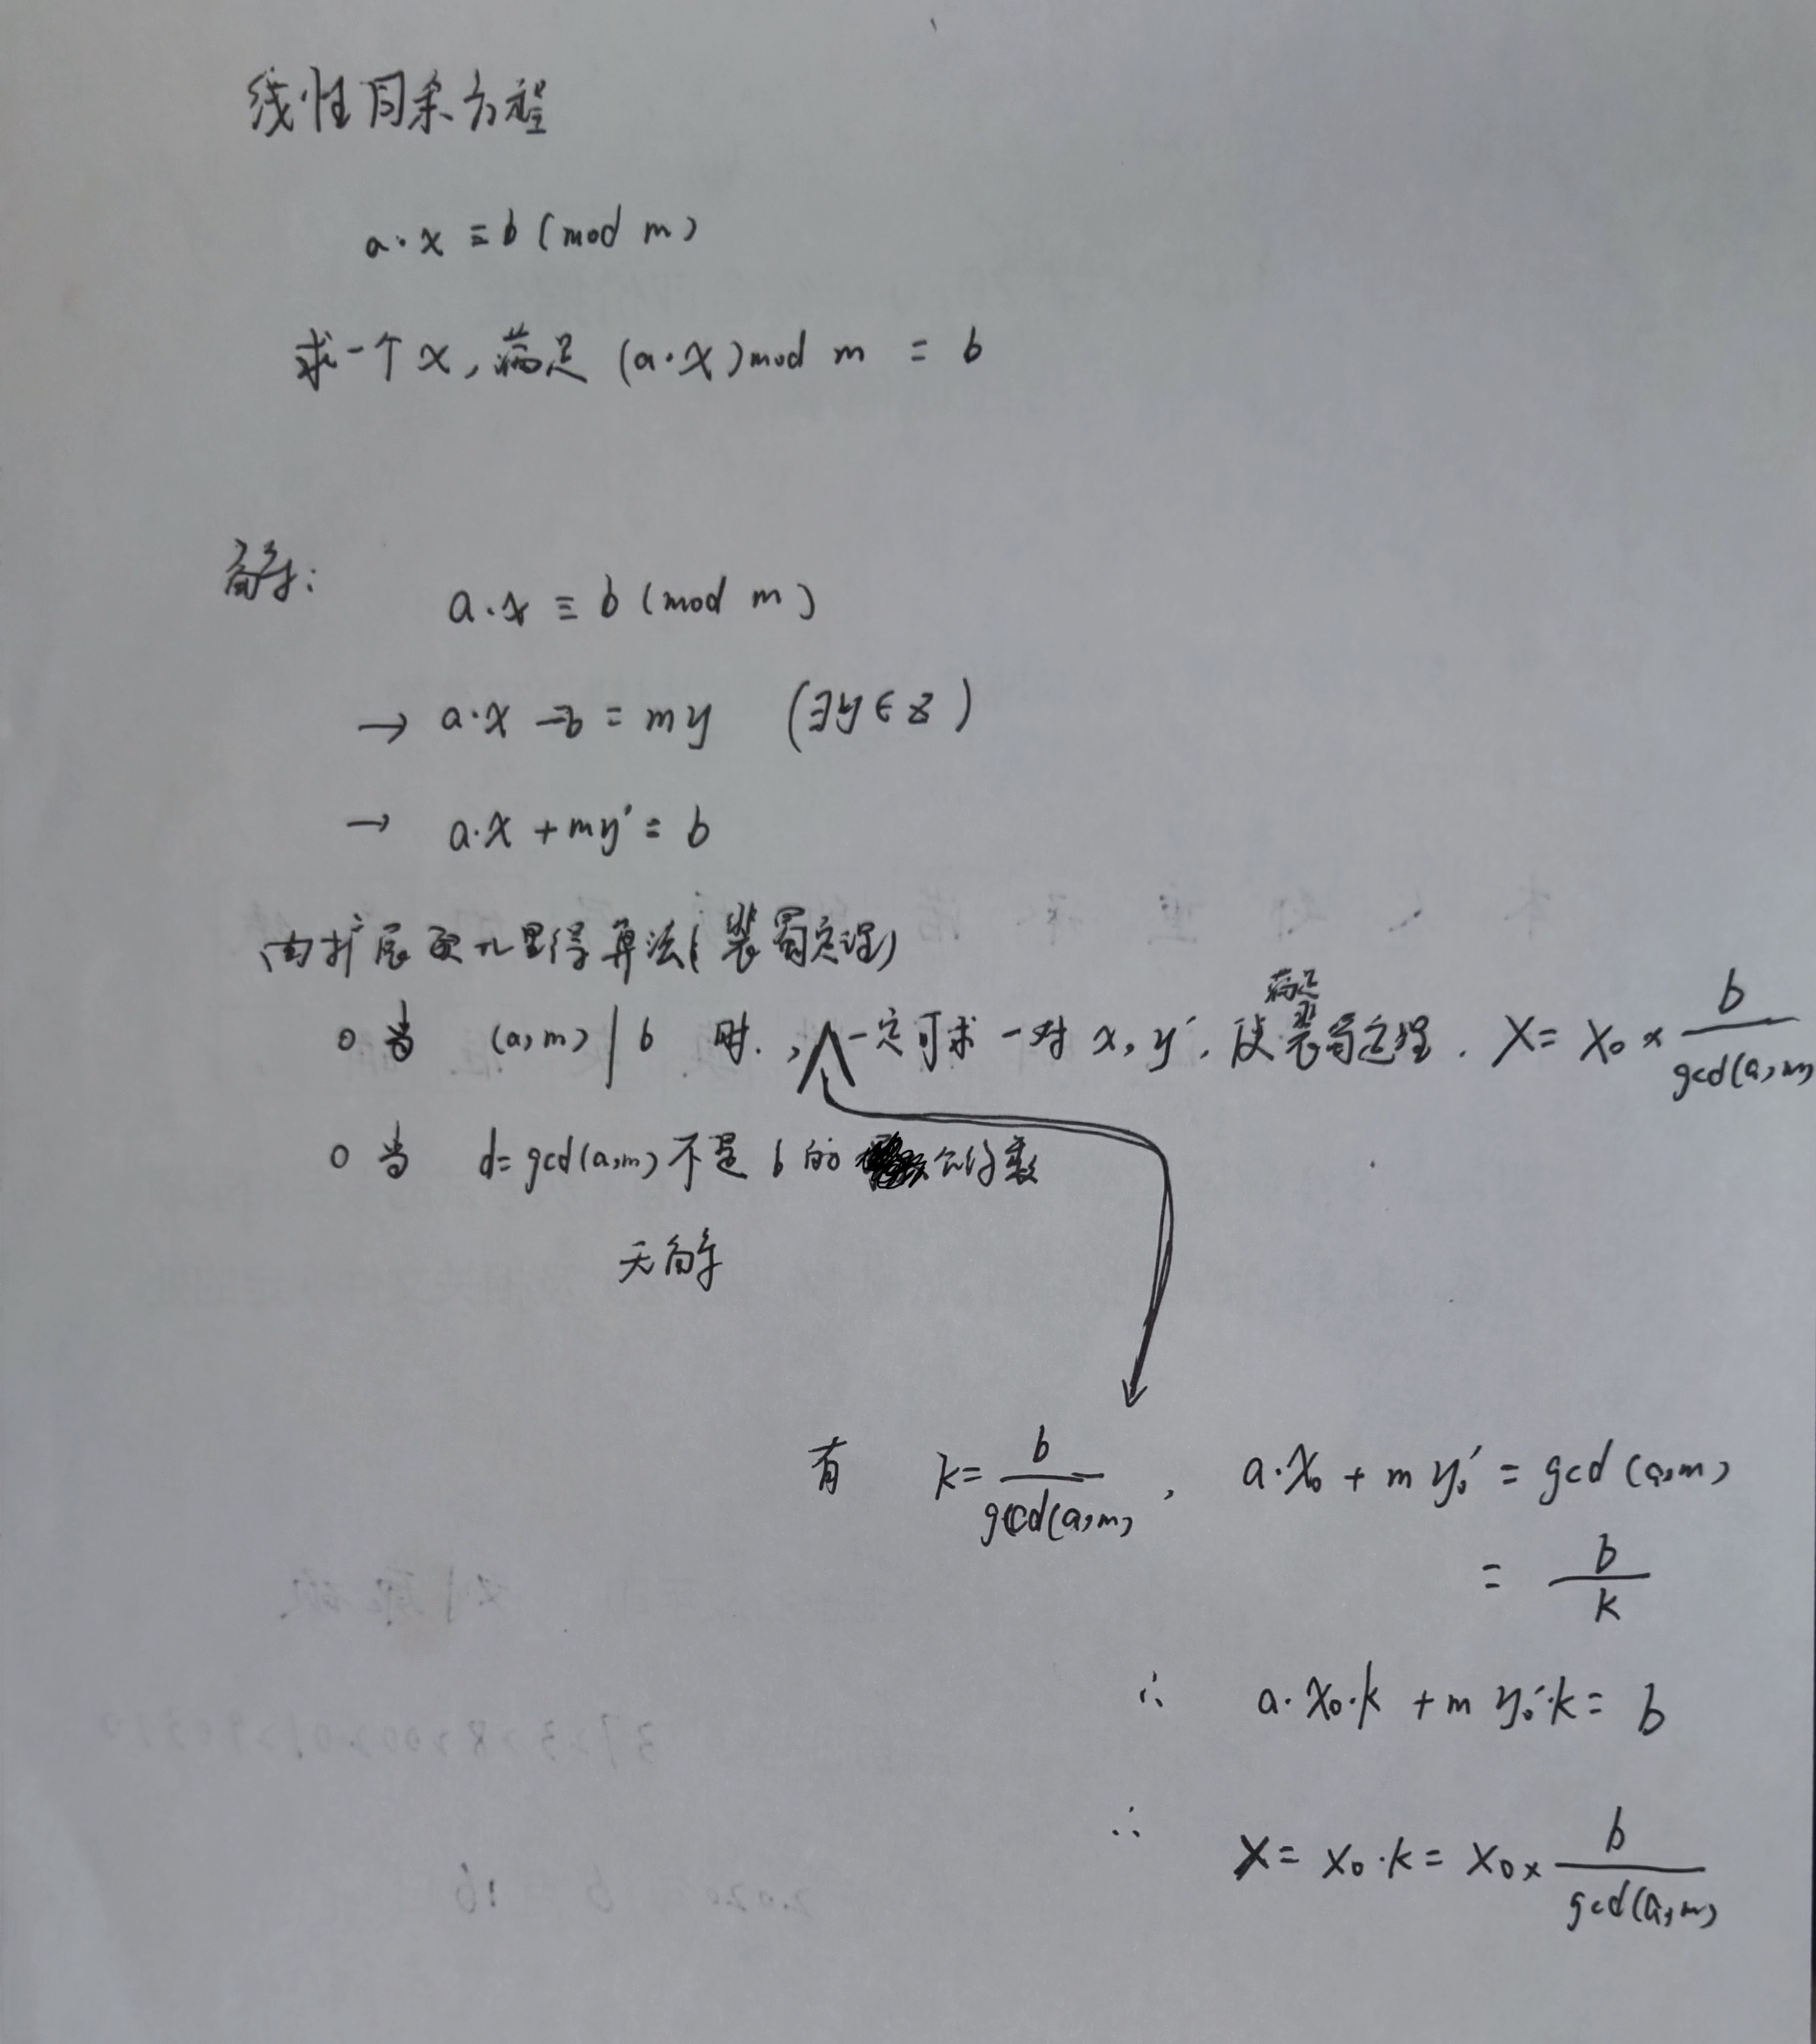 线性同余方程
a·x ≡ b (mod m)
求一个 x, 满足 (a·x) mod m = b
解:
a·x ≡ b (mod m)
→ a·x - b = my (∃y∈Z)
→ a·x + my' = b
由扩展欧几里得算法(裴蜀定理)
○ 当 (a,m) | b 时, 一定可求一对 x, y', 使满足裴蜀定理. X = X₀ × b/gcd(a,m)
○ 当 d = gcd(a,m) 不是 b 的公约数
无解
有 k = b/gcd(a,m), a·X₀ + m y₀' = gcd(a,m)
= b/k
∴ a·X₀·k + m y₀'·k = b
∴ X = X₀·k = X₀ × b/gcd(a,m)